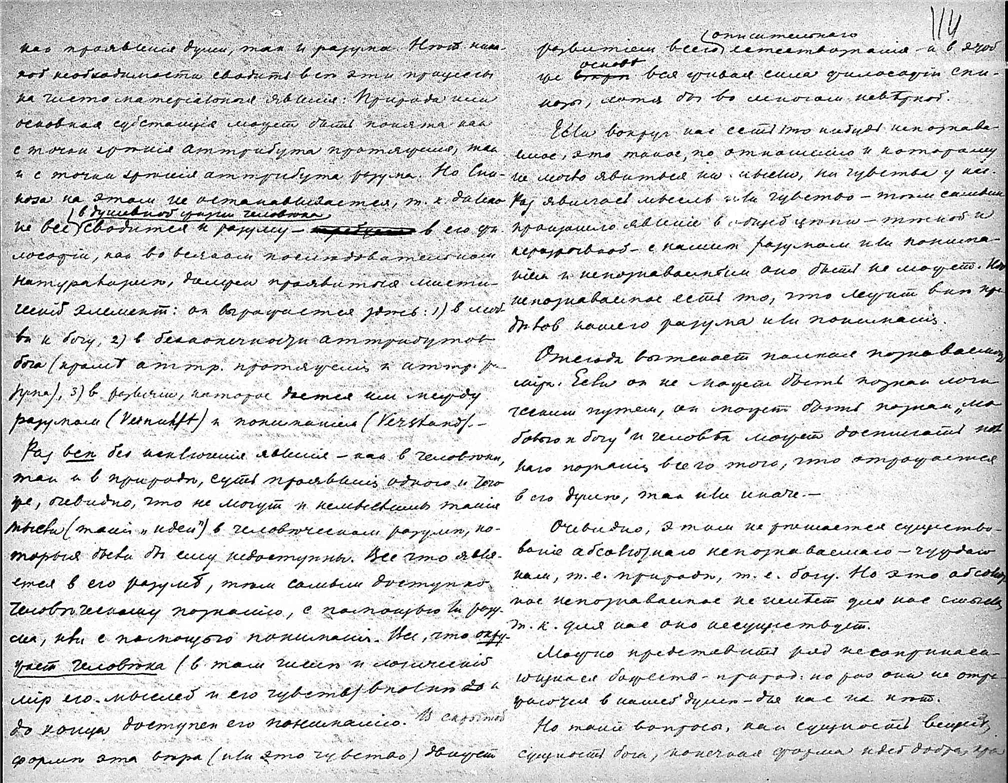 как проявления души, так и разума. Нет ника-
кой необходимости сводить все эти процессы
на чисто материальныя явления: Природа или
основная субстанция может быть понята как
с точки зрения аттрибута протяжения, так
и с точки зрения аттрибута разума. Но Спи-
ноза на этом не останавливается, т. к. далеко
в душевной жизни человека
не все сводится к разуму – в его фи-
лософии, как во всяком последовательном
натурализме, должен проявиться мисти-
ческий элемент: он выражается здесь: 1) в люб-
ви к богу, 2) в бесконечности аттрибутов
бога (кроме аттр. протяжения и аттр. ра-
зума), 3) в различии, которое дается им между
разумом (Vernunft) и пониманием (Verstand). –
Раз все без исключения явления – как в человеке,
так и в природе, суть проявления одного и того
же, очевидно, что не могут и немыслимы такие
мысли (такие „идеи") в человеческом разуме, ко-
торыя были бы ему недоступны. Все что явля-
ется в его разуме, тем самым доступно
человеческому познанию, с помощью ли разу-
ма, или с помощью понимания. Все, что окру-
жает человека (в том числе и логический
мир его мыслей и его чувств) вполне и
до конца доступен его пониманию. В скрытой
форме эта вера (или это чувство) движет
114
описательного
развитием всего естествознания – и в этом
основе
же вся живая сила философии Спи-
нозы, хотя бы во многом неверной.
Если вокруг нас есть что нибудь непознавае-
мое, это такое, по отношению к которому
не могло явиться ни мысли, ни чувства у нас.
Раз явилась мысль или чувство – тем самым
произошло явление в общей цепи – тесной и
неразрывной – с нашим разумом или понима-
нием и непознаваемым оно быть не может.
непознаваемое есть то, что лежит вне пре-
делов нашего разума или понимания.
Отсюда вытекает полная познаваемость
мира. Если он не может быть познан логи-
ческим путем, он может быть познан „лю-
бовью к богу" и человек может достигать пол-
наго познания всего того, что отражается
в его душе, так или иначе. –
Очевидно, этим не решается существо-
вание абсолютнаго непознаваемаго – чуждаго
нам, т. е. природе, т. е. богу. Но это абсолют-
ное непознаваемое не имеет для нас смысла,
т. к. для нас оно не существует.
Можно представить ряд несоприкаса-
ющихся божеств – природ: но раз они не отра-
жаются в нашей душе – для нас их нет.
Но такие вопросы, как сущность вещей,
сущность бога, конечная форма идей добра,